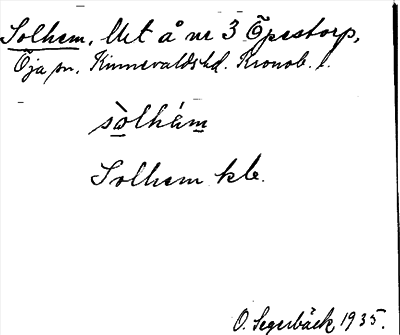 Solhem. Ut å nr 3 Öpestorp,
Öja sn. Kinnevalds hd. Kronob. l.
sòlhám
Solhem kle.
O. Segerbäck 1935.